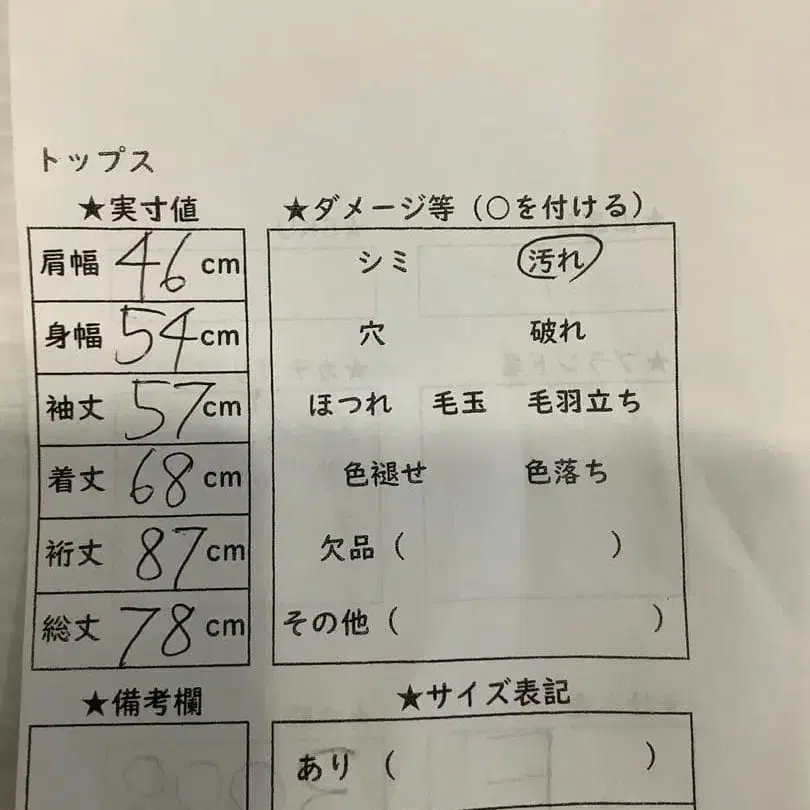 トップス
★実寸値
肩幅 46 cm
身幅 54 cm
袖丈 57 cm
着丈 68 cm
裄丈 87 cm
総丈 78 cm
★備考欄
★ダメージ等（○を付ける）
シミ 汚れ
穴 破れ
ほつれ 毛玉 毛羽立ち
色褪せ 色落ち
欠品（ ）
その他（ ）
★サイズ表記
あり（ ）